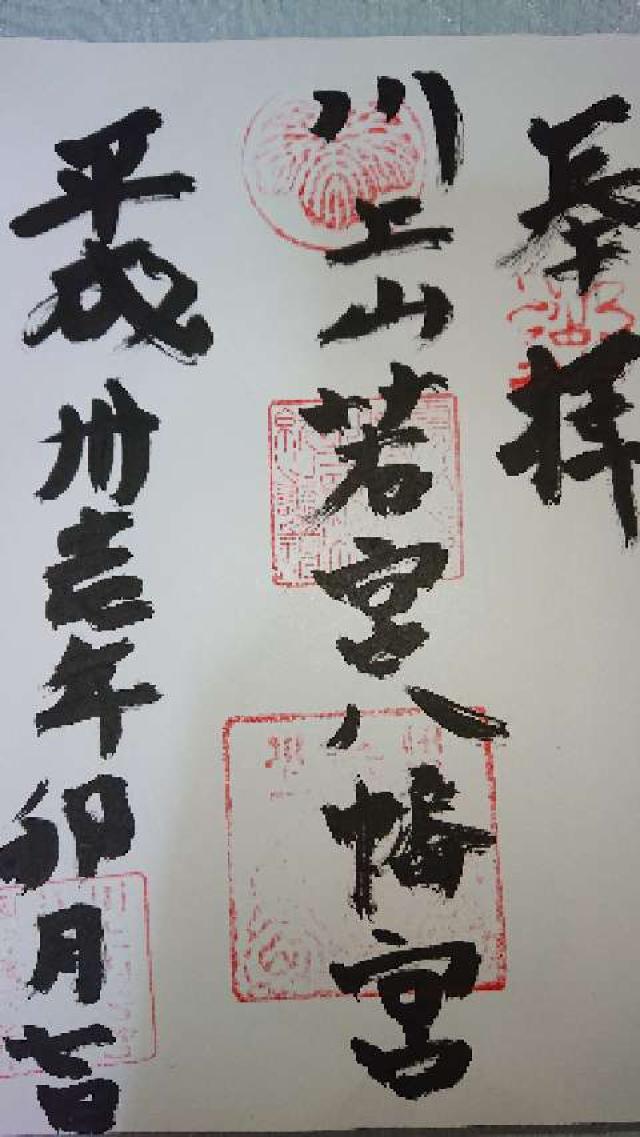 奉拝
川上山若宮八幡宮
平成卅壱年卯月七日